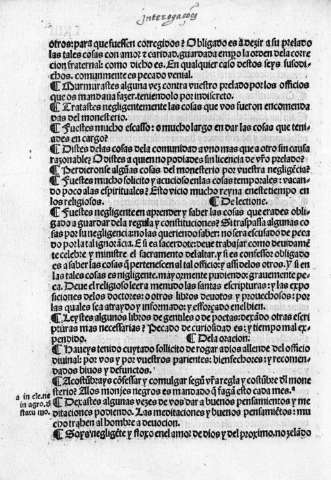 Interogaçoẽs
otros: para que fuessen corregidos? Obligado es a dezir a su prelado
las tales cosas con amor ⁊ caridad. guardada empo la orden dela corre
cion fraternal: como dicho es. En qualquier caso destos seys susodi
chos. comunmente es pecado venial.
¶ Murmurastes alguna vez contra vuestro prelado por los officios
que os mandaua fazer. teniendolo por indiscreto.
¶ Tratastes negligentemente las cosas que vos fueron encomenda
das del monesterio.
¶ Fuestes mucho escasso: o mucho largo en dar las cosas que tenia
des en cargo?
¶ Distes delas cosas dela comunidad a vno mas que a otro sin causa
razonable? O distes a quien no podiades sin licencia de vr̃o prelado?
¶ Perdieron se algũas cosas del monesterio por vuestra negligẽcia?
¶ Fuestes mucho solicito y acucioso en las cosas temporales: ⁊ vacan
do poco a las espirituales? Este vicio mucho reyna eneste tiempo en
los religiosos. ¶ De lectione.
¶ Fuestes negligente en aprender y saber las cosas que erades obli
gado a guardar dela regula y constituciones? Si traspassa algunas co
sas por su negligencia no las queriendo saber: no sera escusado de peca
do por la tal ignorãcia. E si es sacerdote: deue trabajar como deuidamẽ
te celebre y ministre el sacramento del altar. y si es confessor: obligado
es a saber las cosas q̃ pertenescen al tal officio: y assi delos otros. Y si en
las tales cosas es negligente. mayormente pudiendo: grauemente pe
ca. Deue el religioso leer a menudo las santas escripturas: y las expo
siciones delos doctores: o otros libros deuotos: y prouechosos: por
las quales sea atraydo y informado: y efforçado en el bien.
¶ Leystes algunos libros de gentiles o de poetas: dexãdo otras escri
pturas mas necessarias? Pecado de curiosidad es: y tiempo mal ex
pendido. ¶ De la oracion.
¶ Haueys tenido cuytado solicito de rogar a dios allende del officio
diuinal: por vos y por vuestros parientes: bienfechores: y recomen
dados biuos y defunctos.
¶ Acostũbrays cõfessar y comulgar segũ vr̃a regla y costũbre dl mone
sterio? A los monjes negros es mandado q̃ fagã esto cada mes.ª
¶ Dexastes algunas vezes de vos dar a buenos pensamientos y me
ditaciones podiendo. Las meditaciones y buenos pensamiẽtos: mu
cho traben al hombre a deuocion.
¶ Soys negligẽte y floxo en el amor de dios y del proximo. no zelãdo
a in cle. ne
in agro. §
statu mo.